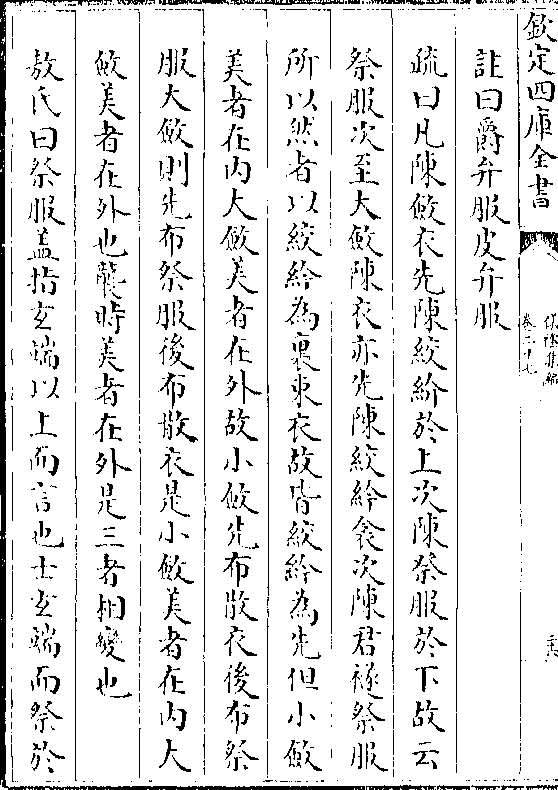 欽定四庫全書
儀禮集編
卷二十七
三六
註曰爵弁服皮弁服
疏曰凡陳斂衣先陳絞紟於上次陳祭服於下故云
祭服次至大斂陳衣亦先陳絞紟衾次陳君襚祭服
所以然者以絞紟為裹束衣故皆絞紟為先但小斂
美者在内大斂美者在外故小斂先布散衣後布祭
服大斂則先布祭服後布散衣是小斂美者在内大
斂美者在外也襲時美者在外是三者相變也
敖氏曰祭服蓋指玄端以上而言也士玄端而祭於